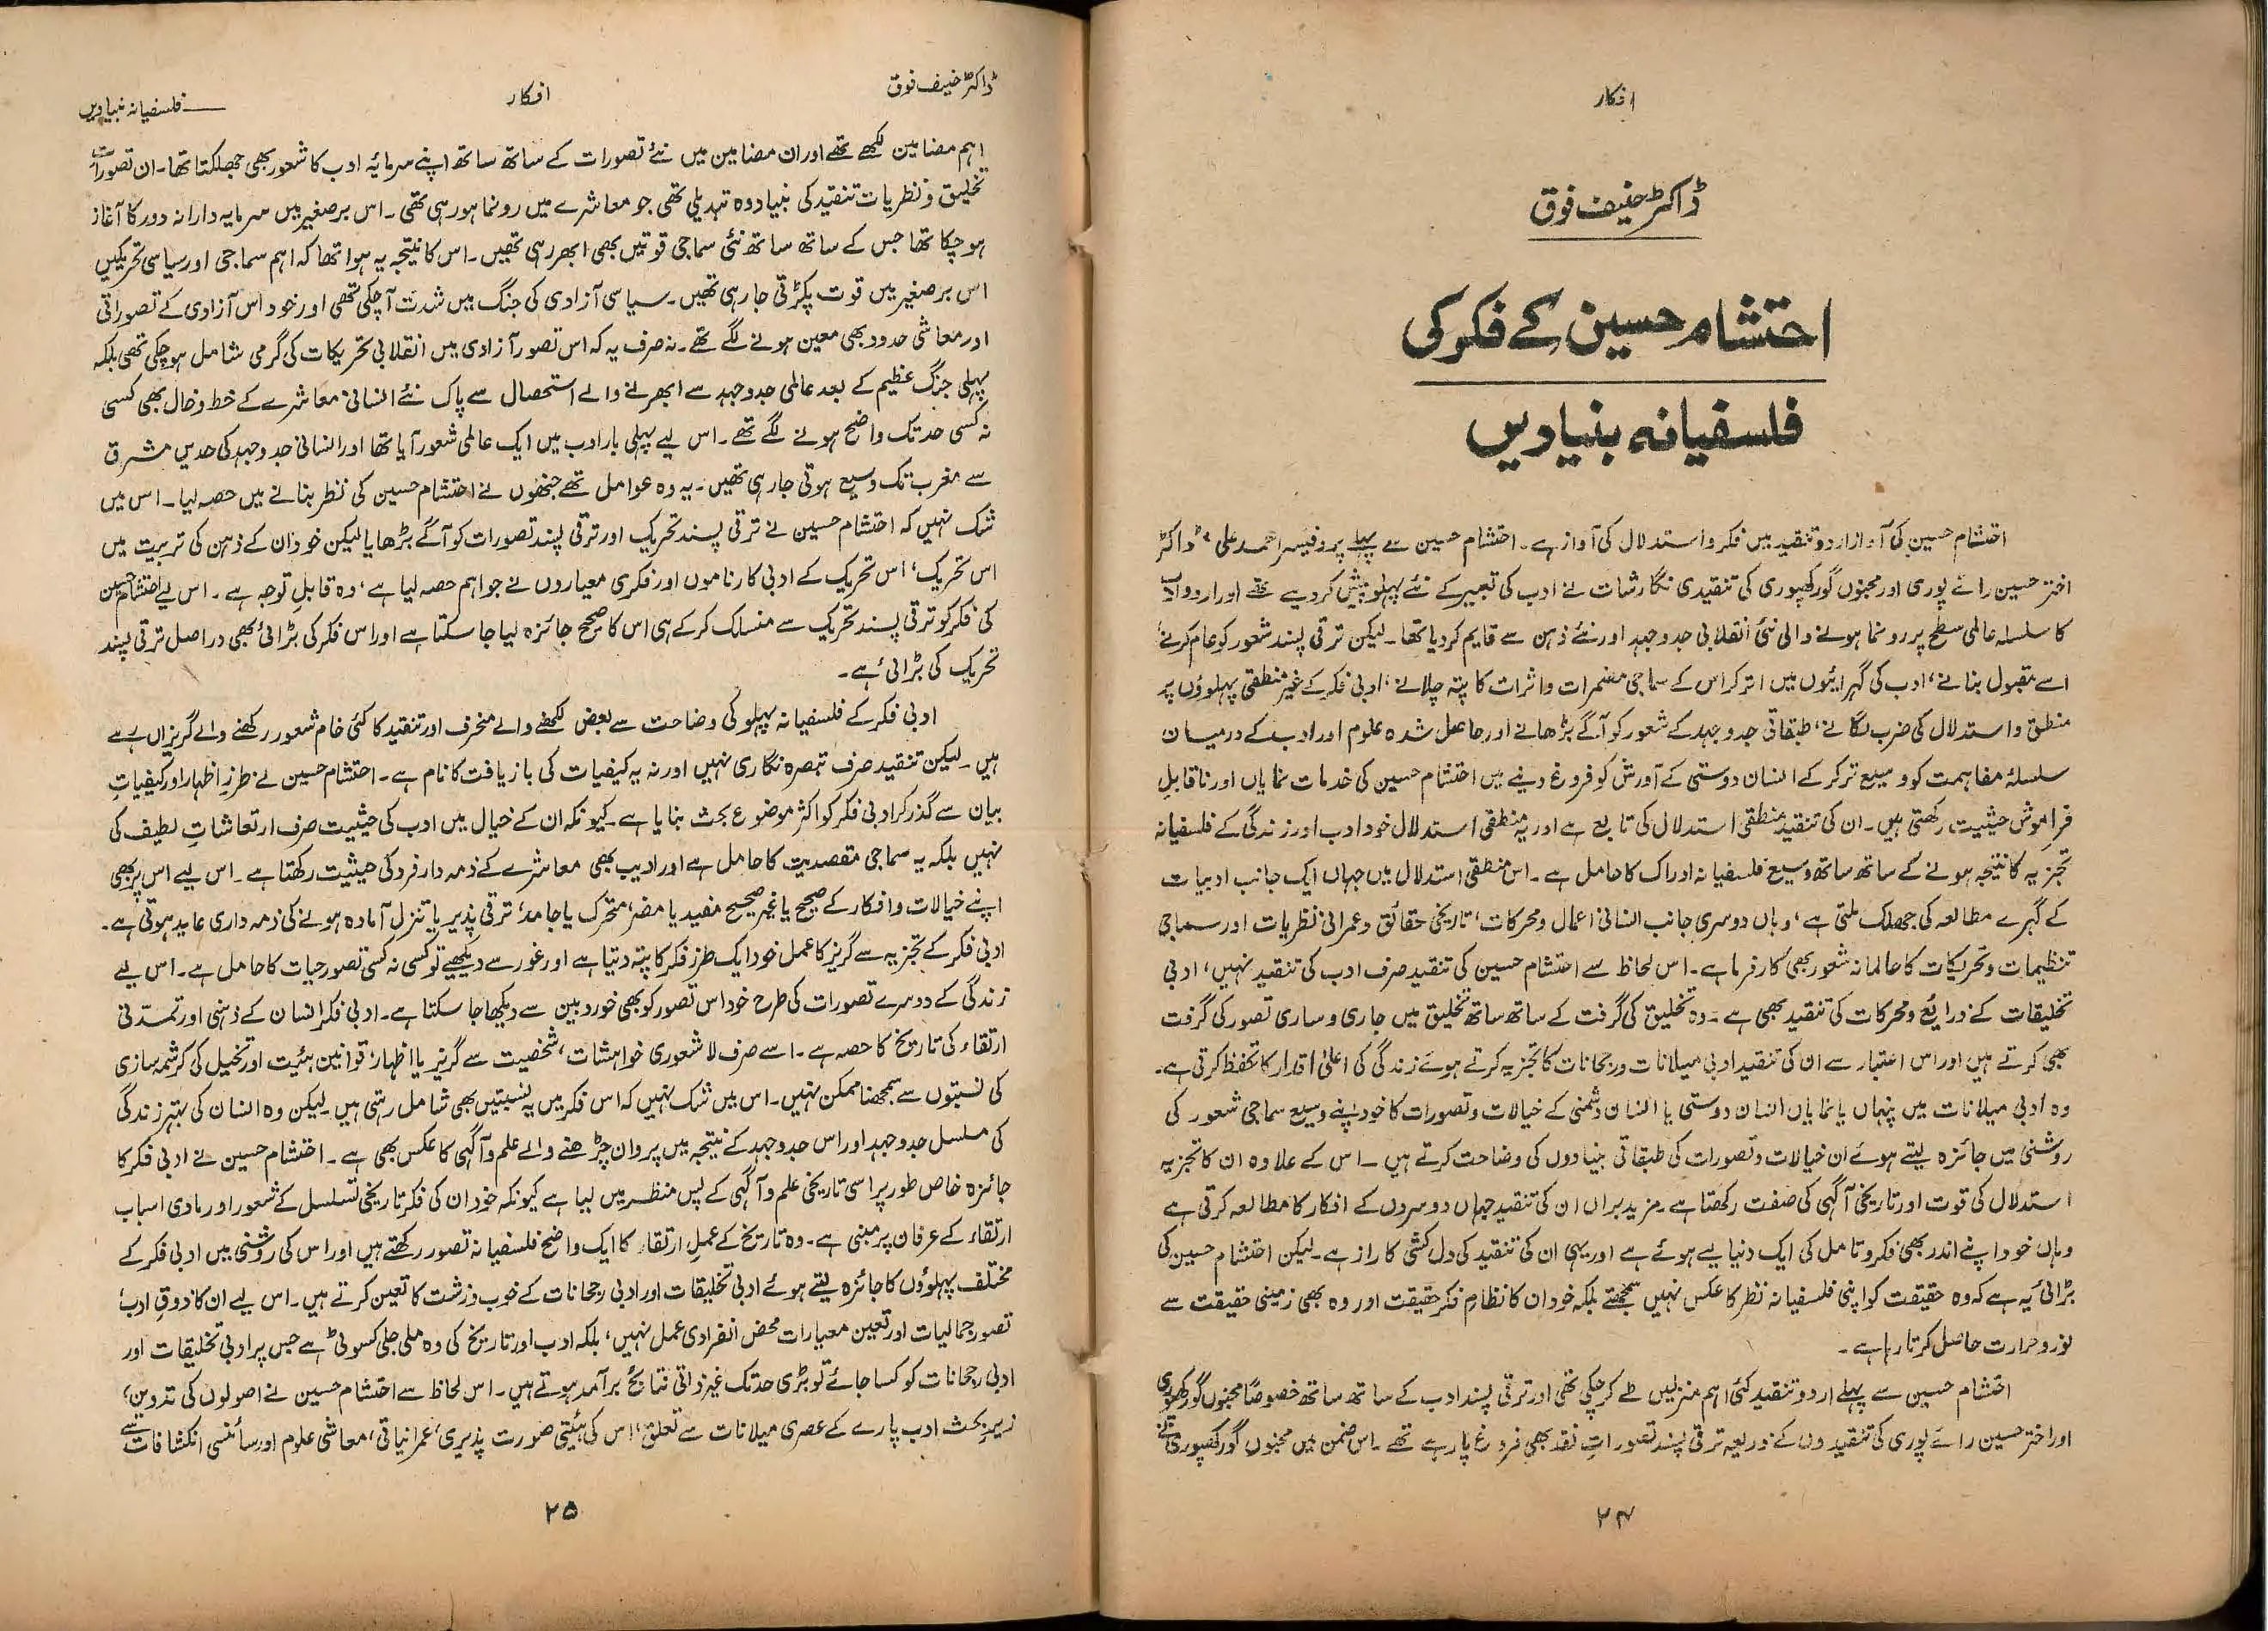 افکار
ڈاکٹر حنیف فوق
احتشام حسین کے فکر کی
فلسفیانہ بنیادیں
احتشام حسین کی آواز اردو تنقید میں فکر و استدلال کی آواز ہے۔ احتشام حسین سے پہلے پروفیسر احمد علی، ڈاکٹر
اختر حسین رائے پوری اور مجنوں گورکھپوری کی تنقیدی نگارشات نے ادب کی تعبیر کے نئے پہلو پیش کر دیے تھے اور اردو ادب
کا سلسلہ عالمی سطح پر رونما ہونے والی نئی انقلابی جدوجہد اور نئے ذہن سے قایم کر دیا تھا۔ لیکن ترقی پسند شعور کو عام کرنے،
اسے مقبول بنانے، ادب کی گہرائیوں میں اتر کر اس کے سماجی مضمرات و اثرات کا پتہ چلانے، ادبی فکر کے غیر منطقی پہلوؤں پر
منطق و استدلال کی ضرب لگانے، طبقاتی جدوجہد کے شعور کو آگے بڑھانے اور حاصل شدہ علوم اور ادب کے درمیان
سلسلۂ مفاہمت کو وسیع تر کر کے انسان دوستی کے آدرش کو فروغ دینے میں احتشام حسین کی خدمات نمایاں اور ناقابلِ
فراموش حیثیت رکھتی ہیں۔ ان کی تنقید منطقی استدلال کی تابع ہے اور یہ منطقی استدلال خود ادب اور زندگی کے فلسفیانہ
تجزیہ کا نتیجہ ہونے کے ساتھ ساتھ وسیع فلسفیانہ ادراک کا حامل ہے۔ اس منطقی استدلال میں جہاں ایک جانب ادبیات
کے گہرے مطالعہ کی جھلک ملتی ہے، وہاں دوسری جانب انسانی اعمال و محرکات، تاریخی حقائق و عمرانی نظریات اور سماجی
تنظیمات و تحریکات کا عالمانہ شعور بھی کارفرما ہے۔ اس لحاظ سے احتشام حسین کی تنقید صرف ادب کی تنقید نہیں، ادبی
تخلیقات کے ذرایع و محرکات کی تنقید بھی ہے۔ وہ تخلیق کی گرفت کے ساتھ ساتھ تخلیق میں جاری و ساری تصور کی گرفت
بھی کرتے ہیں اور اس اعتبار سے ان کی تنقید ادبی میلانات و رجحانات کا تجزیہ کرتے ہوئے زندگی کی اعلیٰ اقدار کا تحفظ کرتی ہے۔
وہ ادبی میلانات میں پنہاں یا نمایاں انسان دوستی یا انسان دشمنی کے خیالات و تصورات کا خود اپنے وسیع سماجی شعور کی
روشنی میں جائزہ لیتے ہوئے ان خیالات و تصورات کی طبقاتی بنیادوں کی وضاحت کرتے ہیں۔ اس کے علاوہ ان کا تجزیہ
استدلال کی قوت اور تاریخی آگہی کی صفت رکھتا ہے۔ مزید براں ان کی تنقید جہاں دوسروں کے افکار کا مطالعہ کرتی ہے
وہاں خود اپنے اندر بھی فکر و تامل کی ایک دنیا لیے ہوئے ہے اور یہی ان کی تنقید کی دل کشی کا راز ہے۔ لیکن احتشام حسین کی
بڑائی یہ ہے کہ وہ حقیقت کو اپنی فلسفیانہ نظر کا عکس نہیں سمجھتے بلکہ خود ان کا نظامِ فکر حقیقت اور وہ بھی زمینی حقیقت سے
نور و حرارت حاصل کرتا رہا ہے۔
احتشام حسین سے پہلے اردو تنقید کئی اہم منزلیں طے کر چکی تھی اور ترقی پسند ادب کے ساتھ ساتھ خصوصاً مجنوں گورکھپوری
اور اختر حسین رائے پوری کی تنقیدوں کے ذریعہ ترقی پسند تصوراتِ نقد بھی فروغ پا رہے تھے۔ اس ضمن میں مجنوں گورکھپوری نے
۲۴
ڈاکٹر حنیف فوق
افکار
فلسفیانہ بنیادیں
اہم مضامین لکھے تھے اور ان مضامین میں نئے تصورات کے ساتھ ساتھ اپنے سرمایۂ ادب کا شعور بھی جھلکتا تھا۔ ان تصورات
تخلیق و نظریات تنقید کی بنیاد وہ تبدیلی تھی جو معاشرے میں رونما ہو رہی تھی۔ اس برصغیر میں سرمایہ دارانہ دور کا آغاز
ہو چکا تھا جس کے ساتھ ساتھ نئی سماجی قوتیں بھی ابھر رہی تھیں۔ اس کا نتیجہ یہ ہوا تھا کہ اہم سماجی اور سیاسی تحریکیں
اس برصغیر میں قوت پکڑتی جا رہی تھیں۔ سیاسی آزادی کی جنگ میں شدت آ چکی تھی اور خود اس آزادی کے تصوراتی
اور معاشی حدود بھی معین ہونے لگے تھے۔ نہ صرف یہ کہ اس تصور آزادی میں انقلابی تحریکات کی گرمی شامل ہو چکی تھی بلکہ
پہلی جنگ عظیم کے بعد عالمی جدوجہد سے ابھرنے والے استحصال سے پاک نئے انسانی معاشرے کے خط و خال بھی کسی
نہ کسی حد تک واضح ہونے لگے تھے۔ اس لیے پہلی بار ادب میں ایک عالمی شعور آیا تھا اور انسانی جدوجہد کی حدیں مشرق
سے مغرب تک وسیع ہوتی جا رہی تھیں۔ یہ وہ عوامل تھے جنھوں نے احتشام حسین کی نظر بنانے میں حصہ لیا۔ اس میں
شک نہیں کہ احتشام حسین نے ترقی پسند تحریک اور ترقی پسند تصورات کو آگے بڑھایا لیکن خود ان کے ذہن کی تربیت میں
اس تحریک، اس تحریک کے ادبی کارناموں اور فکری معیاروں نے جو اہم حصہ لیا ہے، وہ قابلِ توجہ ہے۔ اس لیے احتشام حسین
کی فکر کو ترقی پسند تحریک سے منسلک کر کے ہی اس کا صحیح جائزہ لیا جا سکتا ہے اور اس فکر کی بڑائی بھی دراصل ترقی پسند
تحریک کی بڑائی ہے۔
ادبی فکر کے فلسفیانہ پہلو کی وضاحت سے بعض لکھنے والے منحرف اور تنقید کا کئی خام شعور رکھنے والے گریزاں رہے
ہیں۔ لیکن تنقید صرف تبصرہ نگاری نہیں اور نہ یہ کیفیات کی بازیافت کا نام ہے۔ احتشام حسین نے طرزِ اظہار اور کیفیاتِ
بیان سے گذر کر ادبی فکر کو اکثر موضوع بحث بنایا ہے۔ کیونکہ ان کے خیال میں ادب کی حیثیت صرف ارتعاشاتِ لطیف کی
نہیں بلکہ یہ سماجی مقصدیت کا حامل ہے اور ادیب بھی معاشرے کے ذمہ دار فرد کی حیثیت رکھتا ہے۔ اس لیے اس پر بھی
اپنے خیالات و افکار کے صحیح یا غیر صحیح مفید یا مضر، متحرک یا جامد، ترقی پذیر یا تنزل آمادہ ہونے کی ذمہ داری عاید ہوتی ہے۔
ادبی فکر کے تجزیہ سے گریز کا عمل خود ایک طرزِ فکر کا پتہ دیتا ہے اور غور سے دیکھیے تو کسی نہ کسی تصور حیات کا حامل ہے۔ اس لیے
زندگی کے دوسرے تصورات کی طرح خود اس تصور کو بھی خوردبین سے دیکھا جا سکتا ہے۔ ادبی فکر انسان کے ذہنی اور تمدّنی
ارتقاء کی تاریخ کا حصہ ہے۔ اسے صرف لاشعوری خواہشات، شخصیت سے گریز یا اظہار، قوانین ہئیت اور تخیل کی کرشمہ سازی
کی نسبتوں سے سمجھنا ممکن نہیں۔ اس میں شک نہیں کہ اس فکر میں یہ نسبتیں بھی شامل رہتی ہیں۔ لیکن وہ انسان کی بہتر زندگی
کی مسلسل جدوجہد اور اس جدوجہد کے نتیجہ میں پروان چڑھنے والے علم و آگہی کا عکس بھی ہے۔ احتشام حسین نے ادبی فکر کا
جائزہ خاص طور پر اسی تاریخی علم و آگہی کے پس منظر میں لیا ہے کیونکہ خود ان کی فکر تاریخی تسلسل کے شعور اور مادی اسباب
ارتقاء کے عرفان پر مبنی ہے۔ وہ تاریخ کے عملِ ارتقاء کا ایک واضح فلسفیانہ تصور رکھتے ہیں اور اس کی روشنی میں ادبی فکر کے
مختلف پہلوؤں کا جائزہ لیتے ہوئے ادبی تخلیقات اور ادبی رجحانات کے خوب و زشت کا تعین کرتے ہیں۔ اس لیے ان کا ذوقِ ادب،
تصور جمالیات اور تعین معیارات محض انفرادی عمل نہیں، بلکہ ادب اور تاریخ کی وہ ملی جلی کسوٹی ہے جس پر ادبی تخلیقات اور
ادبی رجحانات کو کسا جائے تو بڑی حد تک غیر ذاتی نتائج برآمد ہوتے ہیں۔ اس لحاظ سے احتشام حسین نے اصولوں کی تدوین،
زیر بحث ادب پارے کے عصری میلانات سے تعلق، اس کی ہئیتی صورت پذیری، عمرانیاتی، معاشی علوم اور سائنسی انکشافات سے
۲۵